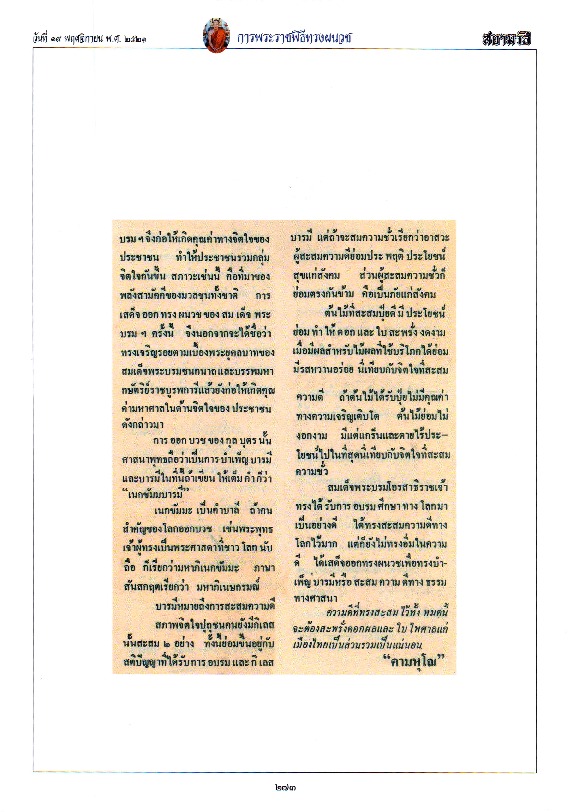 วันที่ ๑๙ พฤศจิกายน พ.ศ. ๒๕๒๑
การพระราชพิธีทรงผนวช
สยามรัฐ
บรม ฯ จึงก่อให้เกิดคุณค่าทางจิตใจของ
ประชาชน ทำให้ประชาชนรวมกลุ่ม
จิตใจกันขึ้น สภาวะเช่นนี้ คือที่มาของ
พลังสามัคคีของมวลชนทั้งชาติ การ
เสด็จ ออก ทรง ผนวช ของ สม เด็จ พระ
บรม ฯ ครั้งนี้ จึงนอกจากจะได้ชื่อว่า
ทรงเจริญรอยตามเบื้องพระยุคลบาทของ
สมเด็จพระบรมชนกนาถ และบรรพมหา
กษัตริย์ราชบูรพการีแล้วยังก่อให้เกิดคุณ
ค่ามหาศาลในด้านจิตใจของ ประชาชน
ดังกล่าวมา
การ ออก บวช ของ กุล บุตร นั้น
ศาสนาพุทธถือว่าเป็นการ บำเพ็ญ บารมี
และบารมีในที่นี้ถ้าเขียน ให้เต็ม คำ ก็ว่า
“เนกขัมมบารมี”
เนกขัมมะ เป็นคำบาลี ถ้าคน
สำคัญของโลกออกบวช เช่นพระพุทธ
เจ้าผู้ทรงเป็นพระศาสดาที่ชาว โลก นับ
ถือ ก็เรียกว่ามหาภิเนกขัมมะ ภาษา
สันสกฤตเรียกว่า มหาภิเนษกรมณ์
บารมีหมายถึงการสะสมความดี
สภาพจิตใจปุถุชนคนยังมีกิเลส
นั้นสะสม ๒ อย่าง ทั้งนี้ย่อมขึ้นอยู่กับ
สติปัญญาที่ได้รับ การ อบรม และ กิ เลส
บารมี แต่ถ้าจะสมความชั่วเรียกว่าอาสวะ
ผู้สะสมความดีย่อมประ พฤติ ประโยชน์
สุขแก่สังคม ส่วนผู้สะสมความชั่วก็
ย่อมตรงกันข้าม คือเป็นภัยแก่สังคม
ต้นไม้ที่สะสมปุ๋ยดี มี ประโยชน์
ย่อม ทำ ให้ ดอก และ ใบ สะพรั่ง งดงาม
เมื่อมีผลสำหรับไม้ผลที่ใช้บริโภคได้ย่อม
มีรสหวานอร่อย นี่เทียบกับจิตใจที่สะสม
ความดี ถ้าต้นไม้ได้รับปุ๋ยไม่มีคุณค่า
ทางความเจริญเติบโต ต้นไม้ย่อมไม่
งอกงาม มีแต่แกร็นและตายไร้ประ–
โยชน์ไปในที่สุดนี่เทียบกับจิตใจที่สะสม
ความชั่ว
สมเด็จพระบรมโอรสาธิราชเจ้า
ทรงได้ รับการ อบรม ศึกษา ทาง โลกมา
เป็นอย่างดี ได้ทรงสะสมความดีทาง
โลกไว้มาก แต่ก็ยังไม่ทรงอิ่มในความ
ดี ได้เสด็จออกทรงผนวชเพื่อทรงบำ–
เพ็ญ บารมีหรือ สะสม ความ ดีทาง ธรรม
ทางศาสนา
ความดีที่ทรงสะสม ไว้ทั้ง หมดนี้
จะต้องสะพรั่งดอกผลและ ใบ ไพศาลแก่
เมืองไทยเป็นส่วนรวมเป็นแน่นอน
“คามหุโณ”
๒๗๓